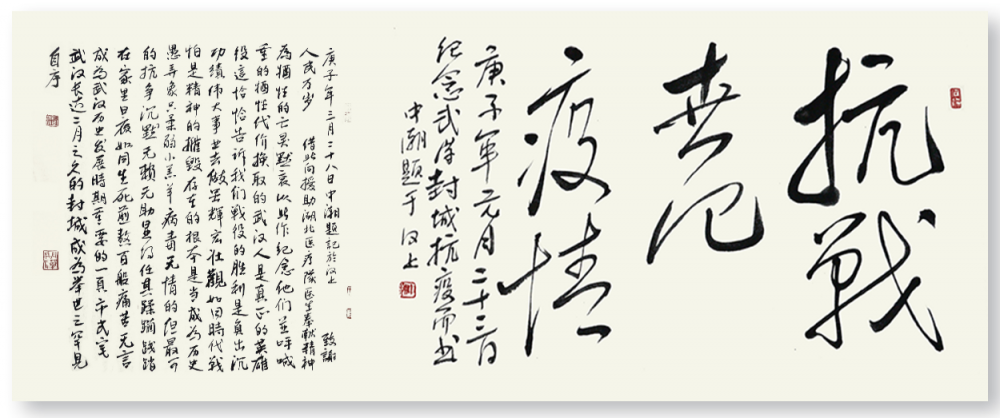 抗戰
世纪
疫情
庚子年元月二十三日
纪念武汉封城抗疫而书
中潮题于汉上
自序
武汉长达二月之久的封城成为举世之罕见
成为武汉历史发展時期重要的一頁
在家里日夜如同生死煎熬百般痛苦无言
的抗争沉默无赖无助显得任其蹂躏践踏
愚弄象只柔弱小羔羊病毒无情的但最可
怕是精神的摧毁存在的根本是当成为历史
功绩伟大事业去做显辉宏壮觀如同時代戰
役這恰恰告诉我们戰役的胜利是負出沉
重的牺牲代价换取的武汉人是真正的英雄
為牺牲的亡灵默哀以此作纪念他们並呼喊
人民万岁 借此向援助湖北医疗隊医生奉献精神
致謝
庚子年三月二十八日中潮题記於汉上